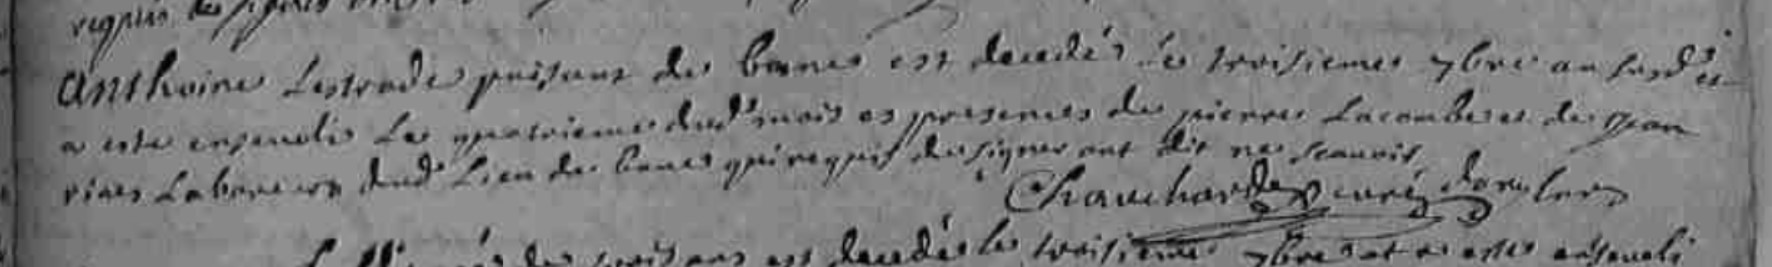 requis de signer
Anthoine Lestrade paisant de banes est decedé le troisieme 7bre an susd et
a este enseveli le quatrieme dud mois es presences de pierre Lacombe et de Jean
vines Laboureurs dud Lieu de banes qui requis de signer ont dit ne scavoir
Chauchard curé
decedé le troisieme 7bre et a este enseveli